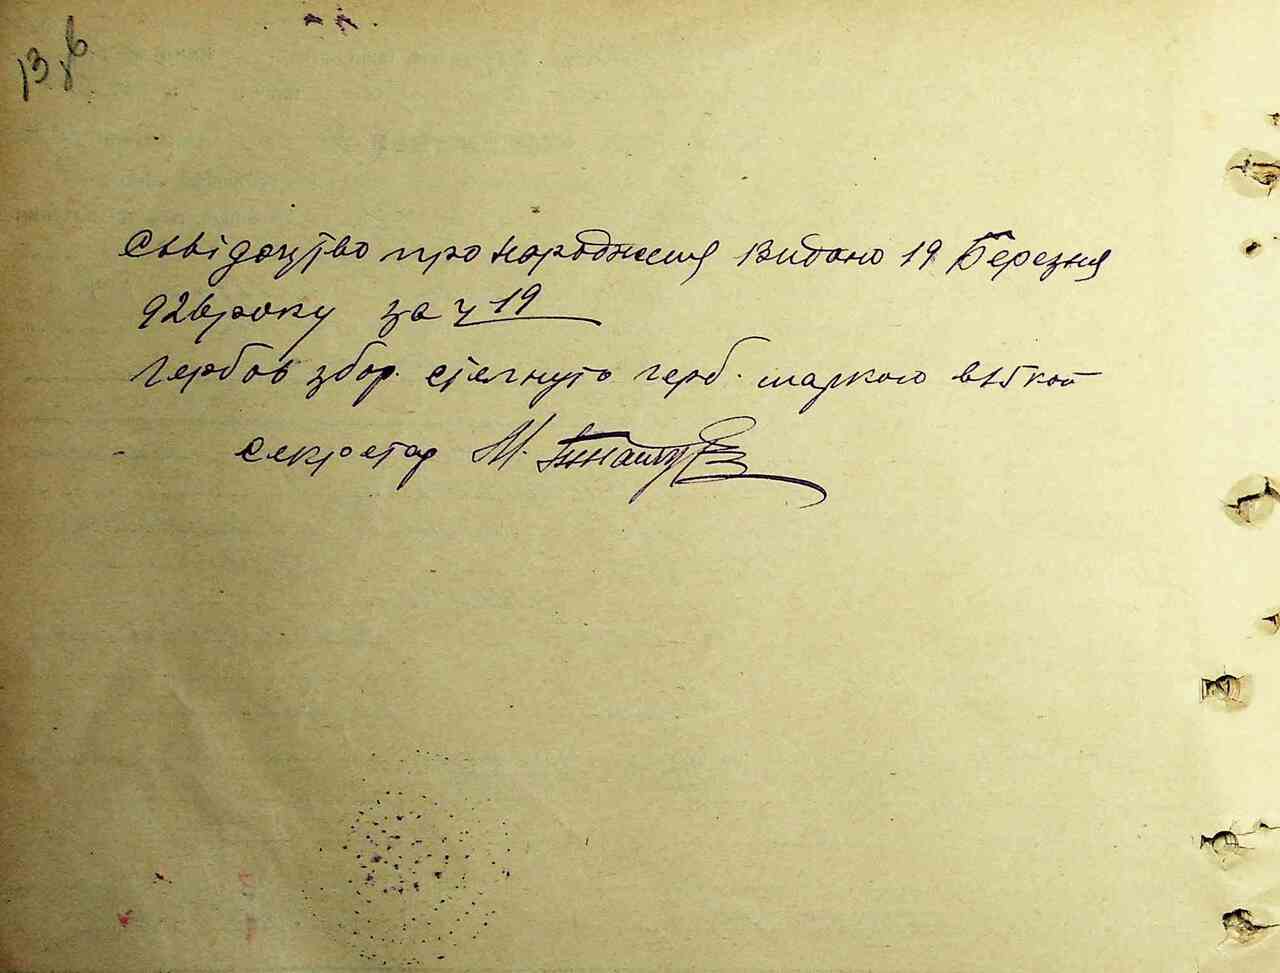 13 зв
Свідоцтво про народження видано 19 Березня
926 року за ч 19
Гербов збор. стягнуто герб. маркою в 15 коп
секретар М.